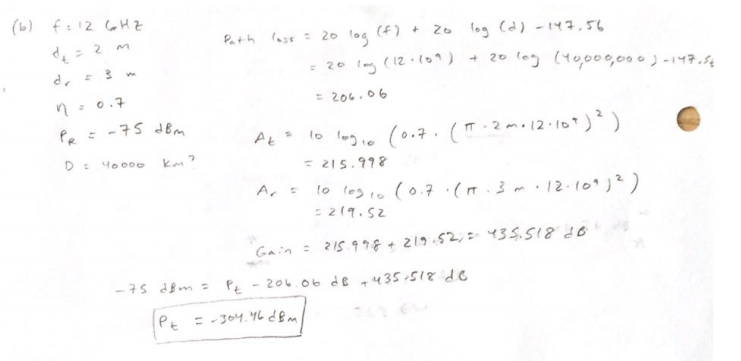 (b) f = 12 GHz
d_t = 2 m
d_r = 3 m
η = 0.7
P_R = -75 dBm
D = 40000 km?
Path loss = 20 log (f) + 20 log (d) - 147.56
= 20 log (12·10⁹) + 20 log (40,000,000) - 147.56
= 206.06
A_t = 10 log₁₀ (0.7 · (π · 2 m · 12·10⁹)²)
= 215.998
A_r = 10 log₁₀ (0.7 · (π · 3 m · 12·10⁹)²)
= 219.52
Gain = 215.998 + 219.52 = 435.518 dB
-75 dBm = P_t - 206.06 dB + 435.518 dB
P_t = -304.46 dBm